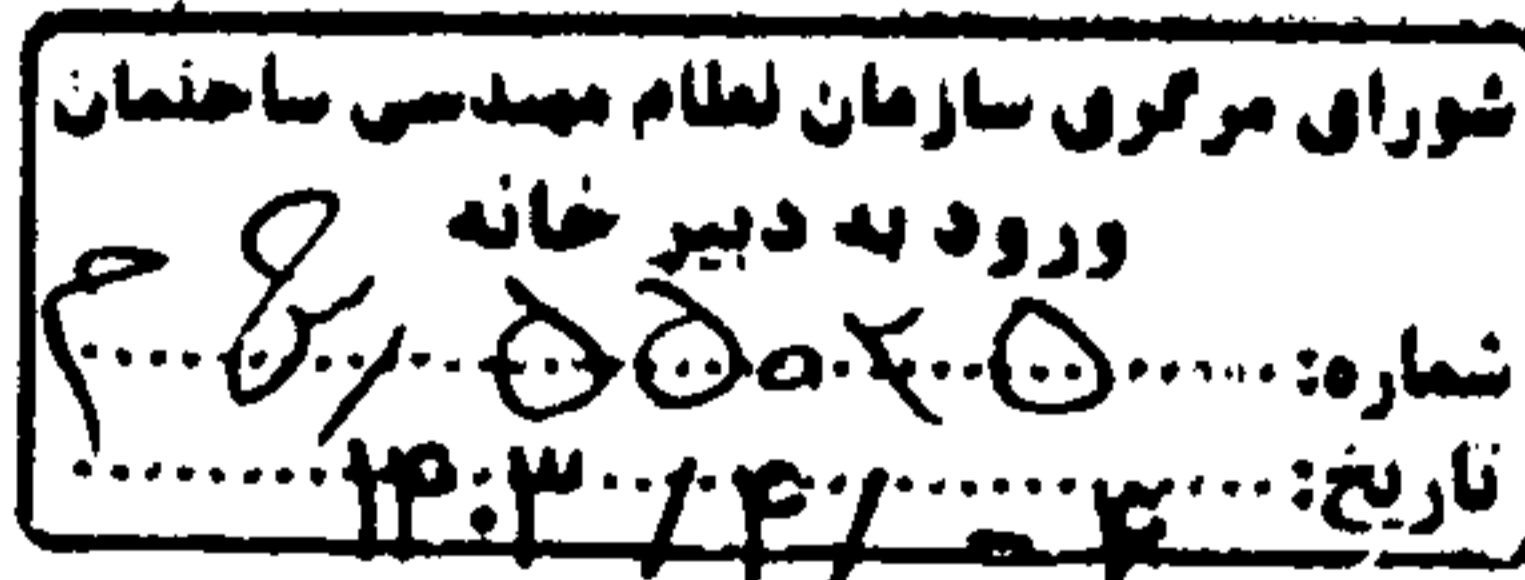 شورای مرکزی سازمان نظام مهندسی ساختمان
ورود به دبیر خانه
شماره:
تاریخ: ۱۴۰۳/۴/۰۴